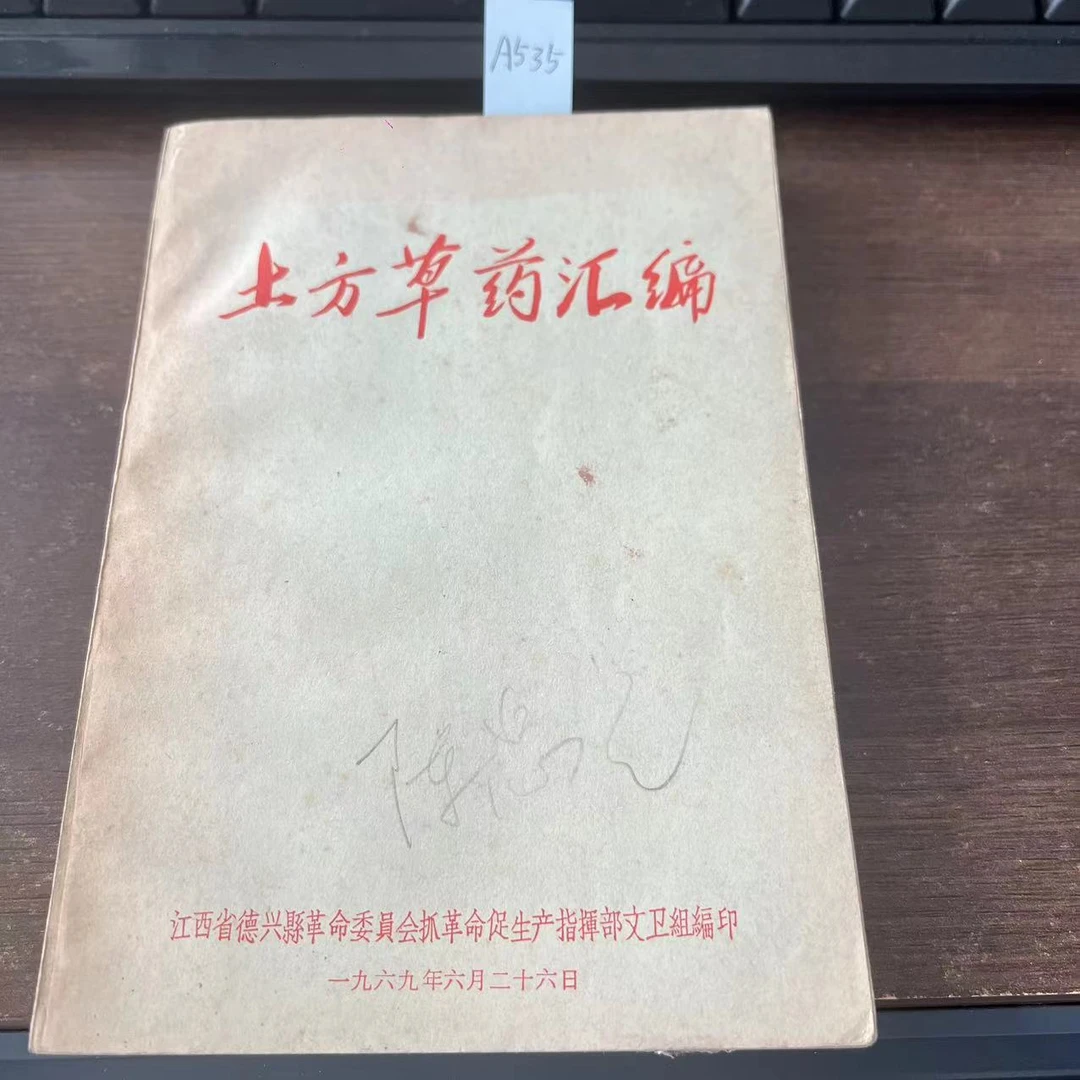 A535
土方草药汇编
陈
江西省德兴縣革命委員会抓革命促生产指揮部文卫組編印
一九六九年六月二十六日